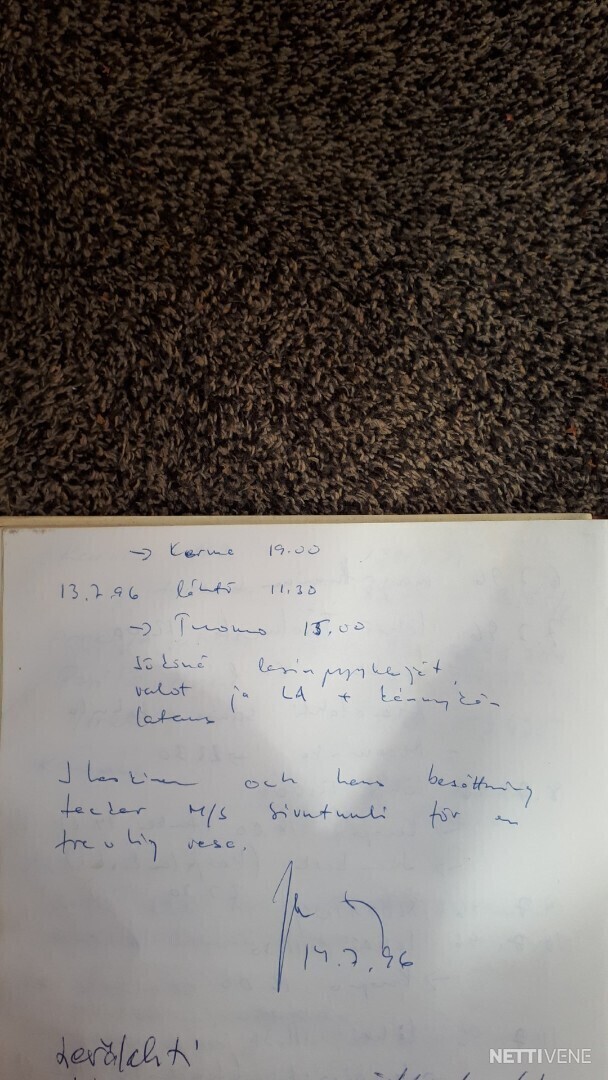 → Kerma 19.00
13.7.96 lähtö 11.30
→ Tuomo 15.00
lasinpyyhkijät,
valot ja LA + kännykän
lataus
och hans besättning
tackar M/S Sivutuuli för en
trevlig resa.
14.7.96
Levälahti
NETTIVENE